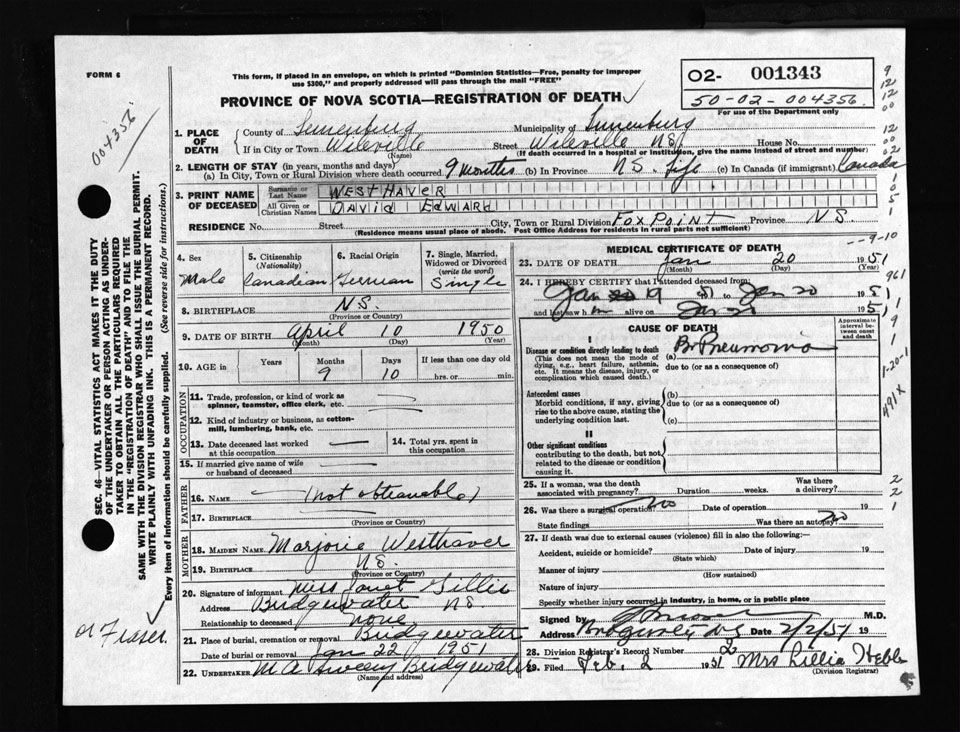 FORM 6
This form, if placed in an envelope, on which is printed "Dominion Statistics—Free, penalty for improper
use $300," and properly addressed will pass through the mail "FREE"
PROVINCE OF NOVA SCOTIA—REGISTRATION OF DEATH ✓
O2- 001343
50-02-004356
For use of the Department only
004356
1. PLACE OF DEATH { County of Lunenburg Municipality of Lunenburg
If in City or Town Wileville (Name) Street Wileville N.S. House No.
(If death occurred in a hospital or institution, give the name instead of street and number)
2. LENGTH OF STAY (in years, months and days)
(a) In City, Town or Rural Division where death occurred. 9 Months (b) In Province N.S. Life (c) In Canada (if immigrant) Canada
3. PRINT NAME OF DECEASED { Surname or Last Name WESTHAVER
All Given or Christian Names DAVID EDWARD
RESIDENCE No. Street City, Town or Rural Division FOX POINT Province N.S.
(Residence means usual place of abode. Post Office Address for residents in rural parts not sufficient)
4. Sex Male
5. Citizenship (Nationality) Canadian
6. Racial Origin German
7. Single, Married, Widowed or Divorced (write the word) Single
8. BIRTHPLACE N.S. (Province or Country)
9. DATE OF BIRTH April 10 1950
(Month) (Day) (Year)
10. AGE in Years Months 9 Days 10 If less than one day old hrs. or min.
OCCUPATION
11. Trade, profession, or kind of work as spinner, teamster, office clerk, etc. —
12. Kind of industry or business, as cotton-mill, lumbering, bank, etc. —
13. Date deceased last worked at this occupation —
14. Total yrs. spent in this occupation
15. If married give name of wife or husband of deceased —
FATHER
16. NAME — (not obtainable)
17. BIRTHPLACE — (Province or Country)
MOTHER
18. MAIDEN NAME Marjorie Westhaver
19. BIRTHPLACE N.S. (Province or Country)
20. Signature of informant Miss Janet Gillis
Address Bridgewater N.S.
Relationship to deceased none
21. Place of burial, cremation or removal Bridgewater
Date of burial or removal Jan 22 1951
22. UNDERTAKER M A Sweeny Bridgewater
(Name and address)
MEDICAL CERTIFICATE OF DEATH
23. DATE OF DEATH Jan 20 1951
(Month) (Day) (Year)
24. I HEREBY CERTIFY that I attended deceased from:
Jan 19 51 to Jan 20 1951
and last saw h im alive on Jan 1951
CAUSE OF DEATH
Approximate interval between onset and death
I
Disease or condition directly leading to death
(This does not mean the mode of dying, e.g., heart failure, asthenia, etc. It means the disease, injury, or complication which caused death.)
(a) Br Pneumonia
due to (or as a consequence of)
Antecedent causes
Morbid conditions, if any, giving rise to the above cause, stating the underlying condition last.
(b)
due to (or as a consequence of)
(c)
II
Other significant conditions
contributing to the death, but not related to the disease or condition causing it.
25. If a woman, was the death associated with pregnancy? Duration weeks. Was there a delivery?
26. Was there a surgical operation? No Date of operation 19
State findings Was there an autopsy? No
27. If death was due to external causes (violence) fill in also the following:—
Accident, suicide or homicide? (State which) Date of injury 19
Manner of injury (How sustained)
Nature of injury
Specify whether injury occurred in industry, in home, or in public place
Signed by M.D.
Address N.S. Date 2/2/51 19
28. Division Registrar's Record Number 2
29. Filed Feb. 2 1951 Mrs Lillia Hebb
(Division Registrar)
SEC. 46—VITAL STATISTICS ACT MAKES IT THE DUTY
OF THE UNDERTAKER OR PERSON ACTING AS UNDER-
TAKER TO OBTAIN ALL THE PARTICULARS REQUIRED
IN THE "REGISTRATION OF DEATH" AND TO FILE THE
SAME WITH THE DIVISION REGISTRAR WHO SHALL ISSUE THE BURIAL PERMIT.
WRITE PLAINLY WITH UNFADING INK. THIS IS A PERMANENT RECORD.
Every item of information should be carefully supplied. (See reverse side for instructions.)
or Fraser
9
12
12
00
12
00
02
1
0
5
1
--9-10
961
1
9
1
1-20-1
491X
2
2
1